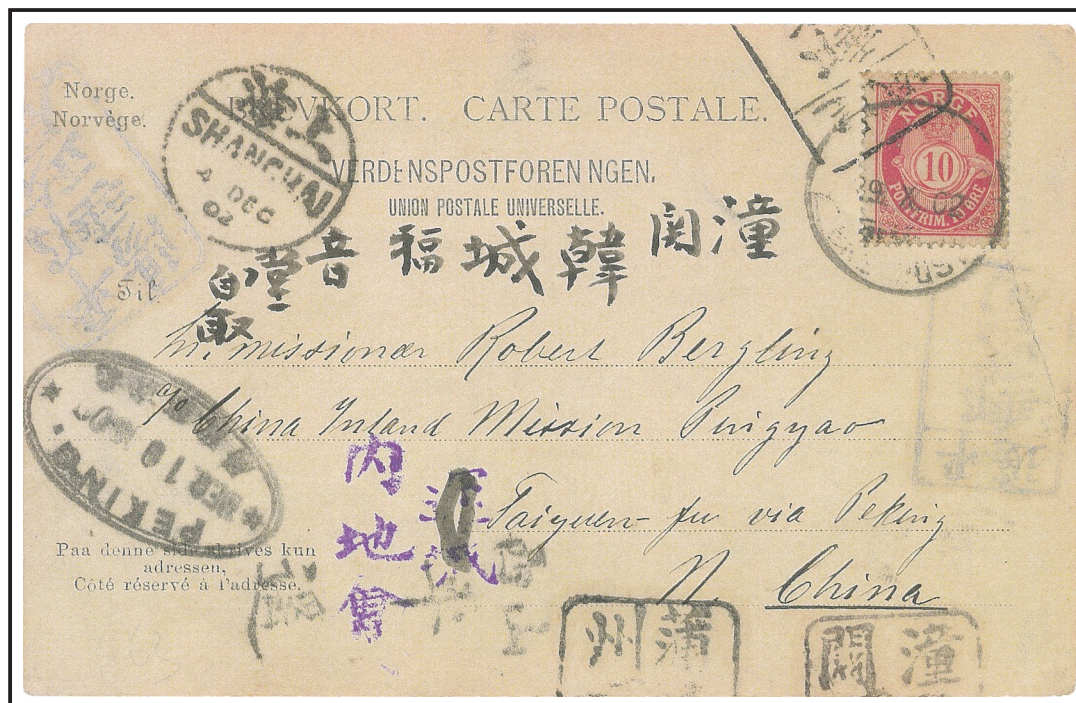 Norge.
Norvège.
BREVKORT. CARTE POSTALE.
VERDENSPOSTFORENINGEN.
UNION POSTALE UNIVERSELLE.
上海
SHANGHAI
4 DEC
02
NORGE
10
POSTFRIM. ØRE
潼関韓城福音堂自取
Til
Hr. missionær Robert Bergling
c/o China Inland Mission Pingyao
Taiyuen-fu via Peking
N. China
PEKING.
DEC 10
內地會
Paa denne side skrives kun
adressen,
Côté réservé à l'adresse.
蒲州
潼關